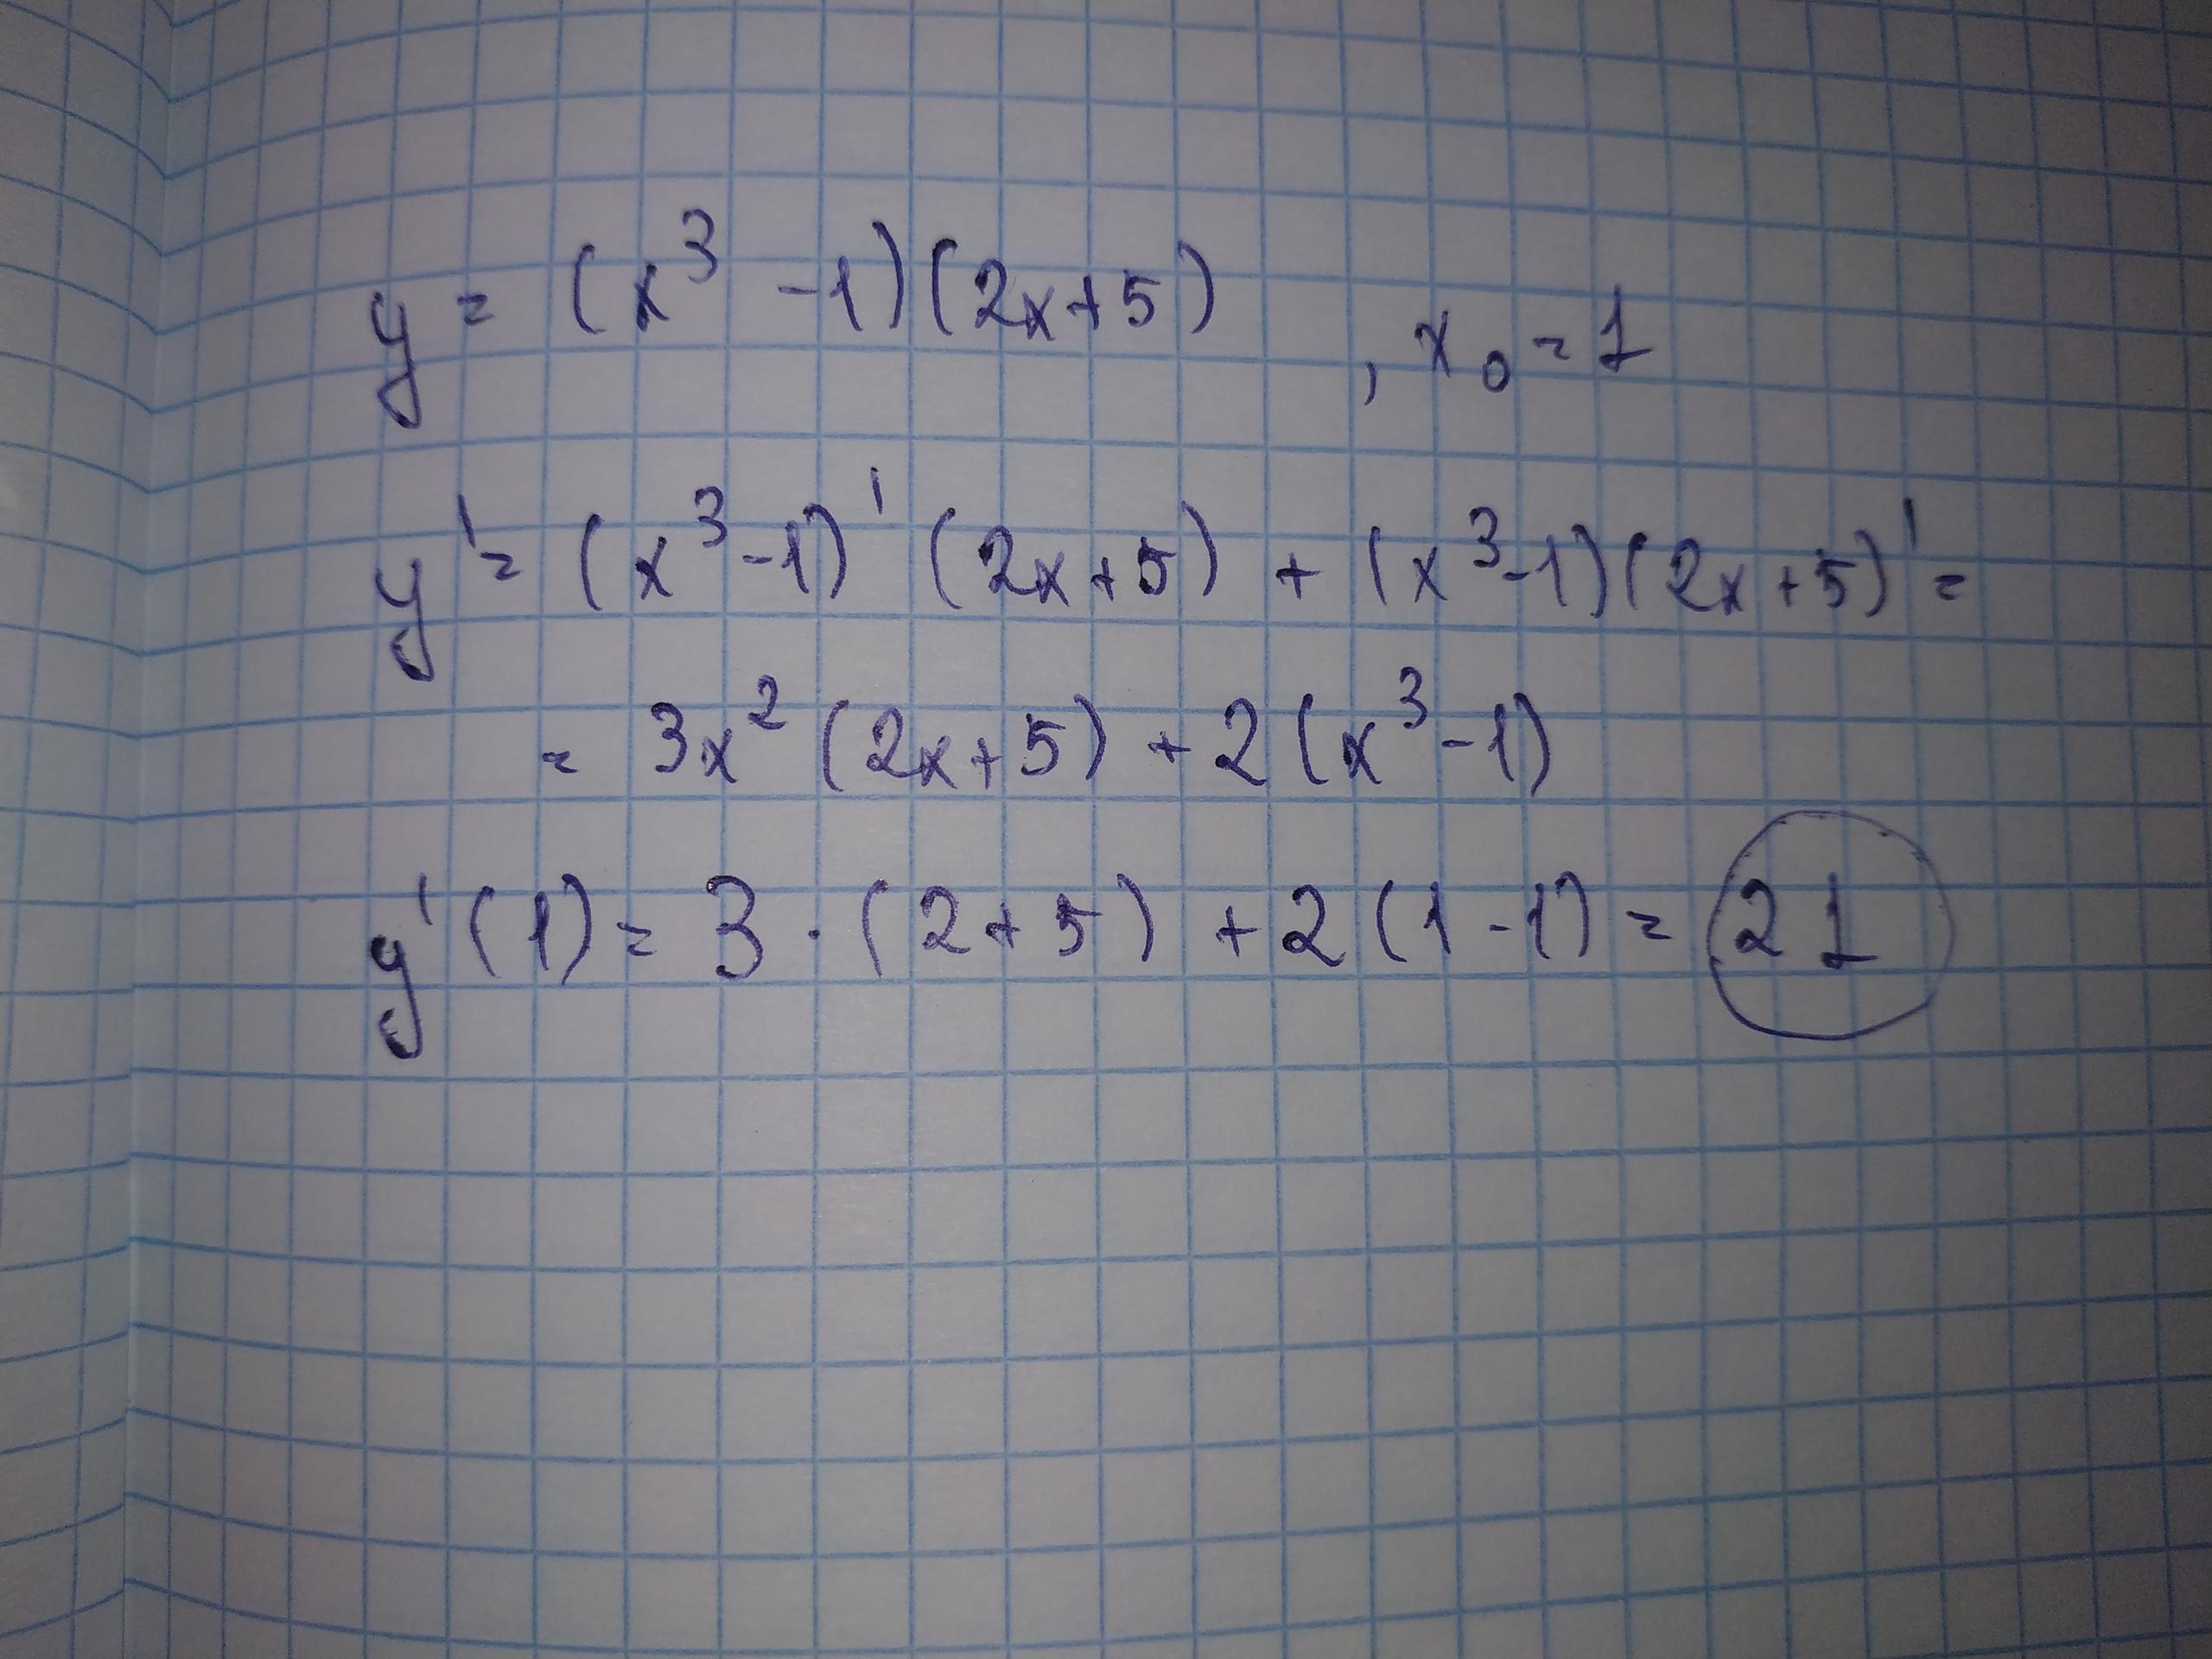 y = (x³ -1)(2x+5) , x₀ = 1
y' = (x³-1)' (2x+5) + (x³-1)(2x+5)' =
= 3x² (2x+5) + 2(x³-1)
y'(1) = 3 · (2+5) + 2(1-1) = 21